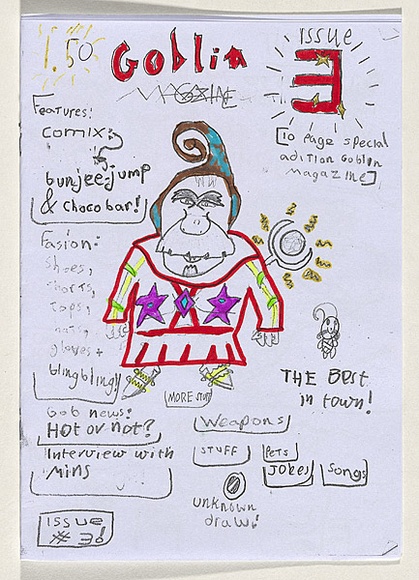 1.50
Goblin
MAGOZINE
ISSUE
3
[10 page special
adition Goblin
magazine]
Features:
comix:
bunjee-jump
& chocobar!
Fasion:
Shoes,
shorts,
tops,
hats,
gloves +
blingbling!
MORE STUFF
THE BEST
in town!
Gob news:
HOT or NOT?
Interview with
Mins
Weapons
STUFF
PETS
JOKES
Songs
unknown
draw!
ISSUE
# 3!